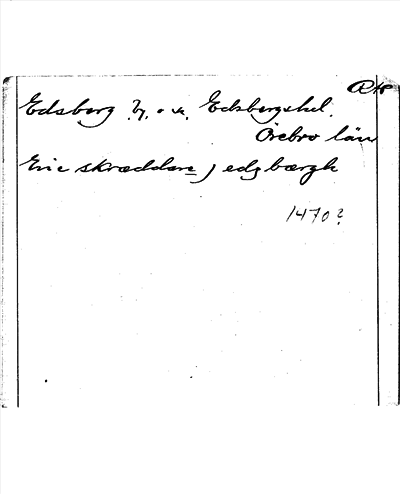 Edsberg by. o. sn. Edsbergs hd.
Örebro län
Eric skræddare j edzbærgh
1470?